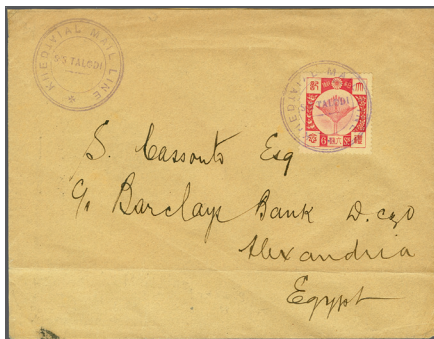 KHEDIVIAL MAIL LINE
SS TALODI
KHEDIVIAL MA
TALODI
S. Cassouto Esq
c/o Barclays Bank D.C.&O
Alexandria
Egypt